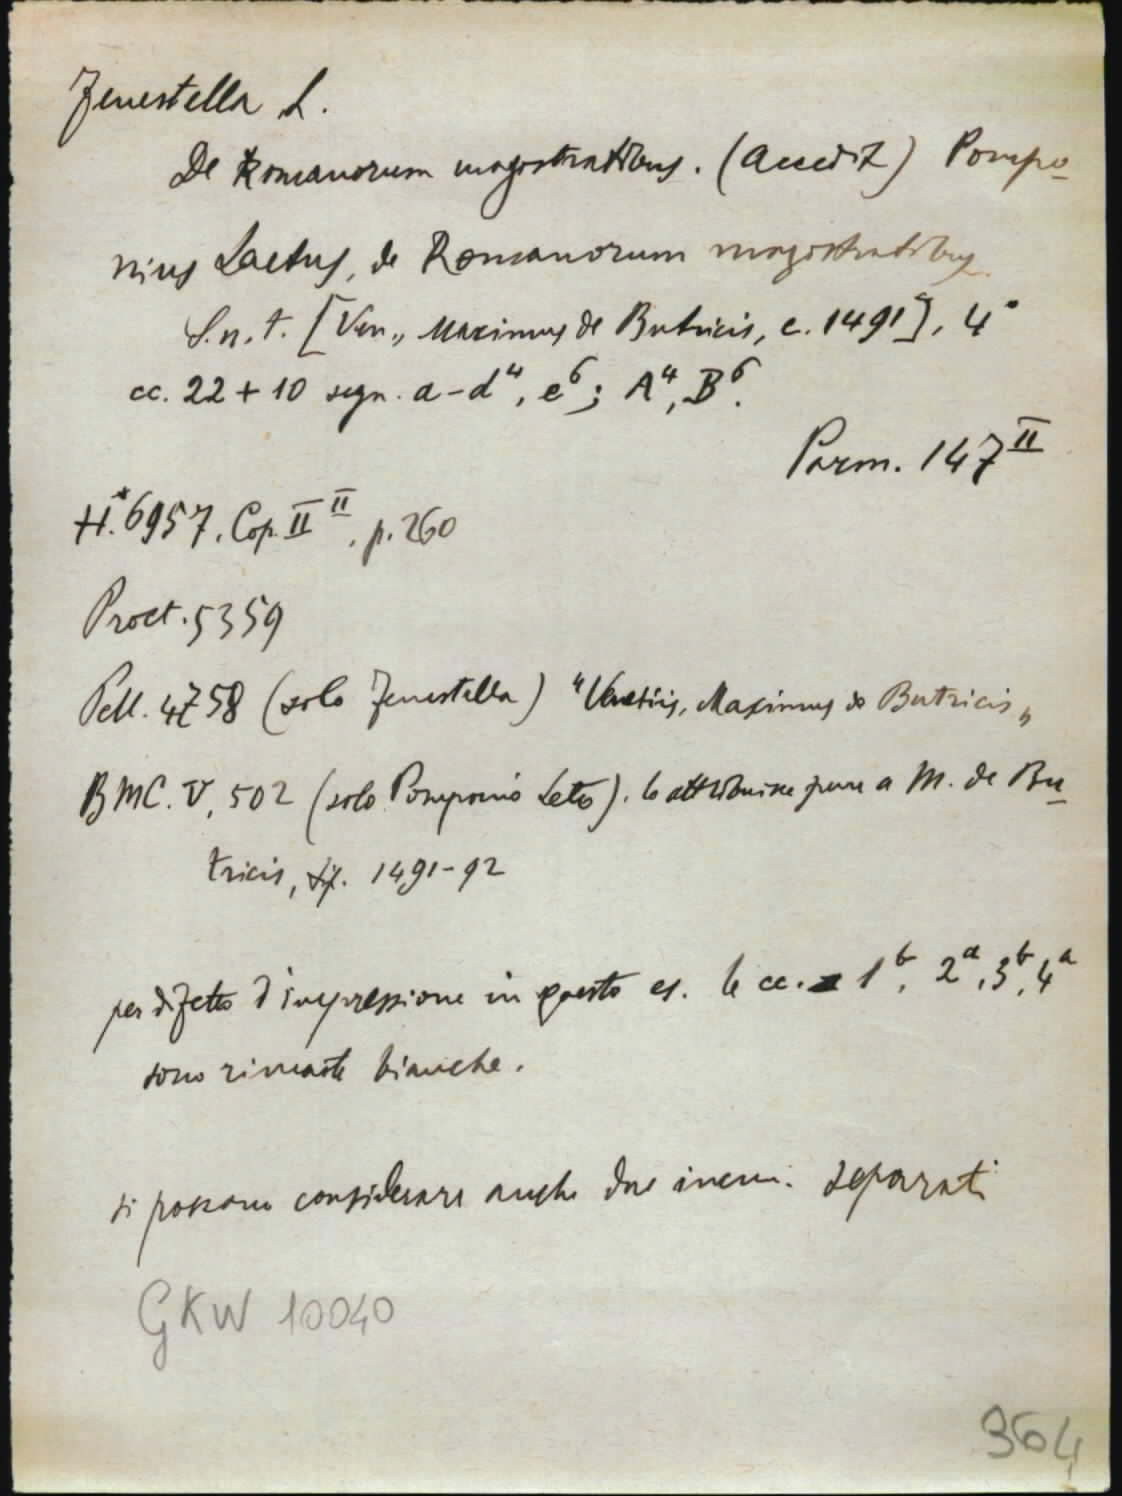 Fenestella L.
De Romanorum magistratibus. (Accedit) Pompo-
nius Laetus, de Romanorum magistratibus
S.n.t. [Ven., Maximus de Butricis, c. 1491], 4°
cc. 22 + 10 segn. a-d⁴, e⁶; A⁴, B⁶.
Parm. 147 II
H.* 6957. Cop. II II, p. 260
Proct. 5359
Pell. 4758 (solo Fenestella) "Venetiis, Maximus de Butricis"
BMC. V, 502 (solo Pomponio Leto). lo attribuisce pure a M. de Bu-
tricis, 1491-92
per difetto d'impressione in questo es. le cc. 1ᵇ, 2ᵃ, 3ᵇ, 4ᵃ
sono rimaste bianche.
si possono considerare anche due incun. separati
GKW 10040
364